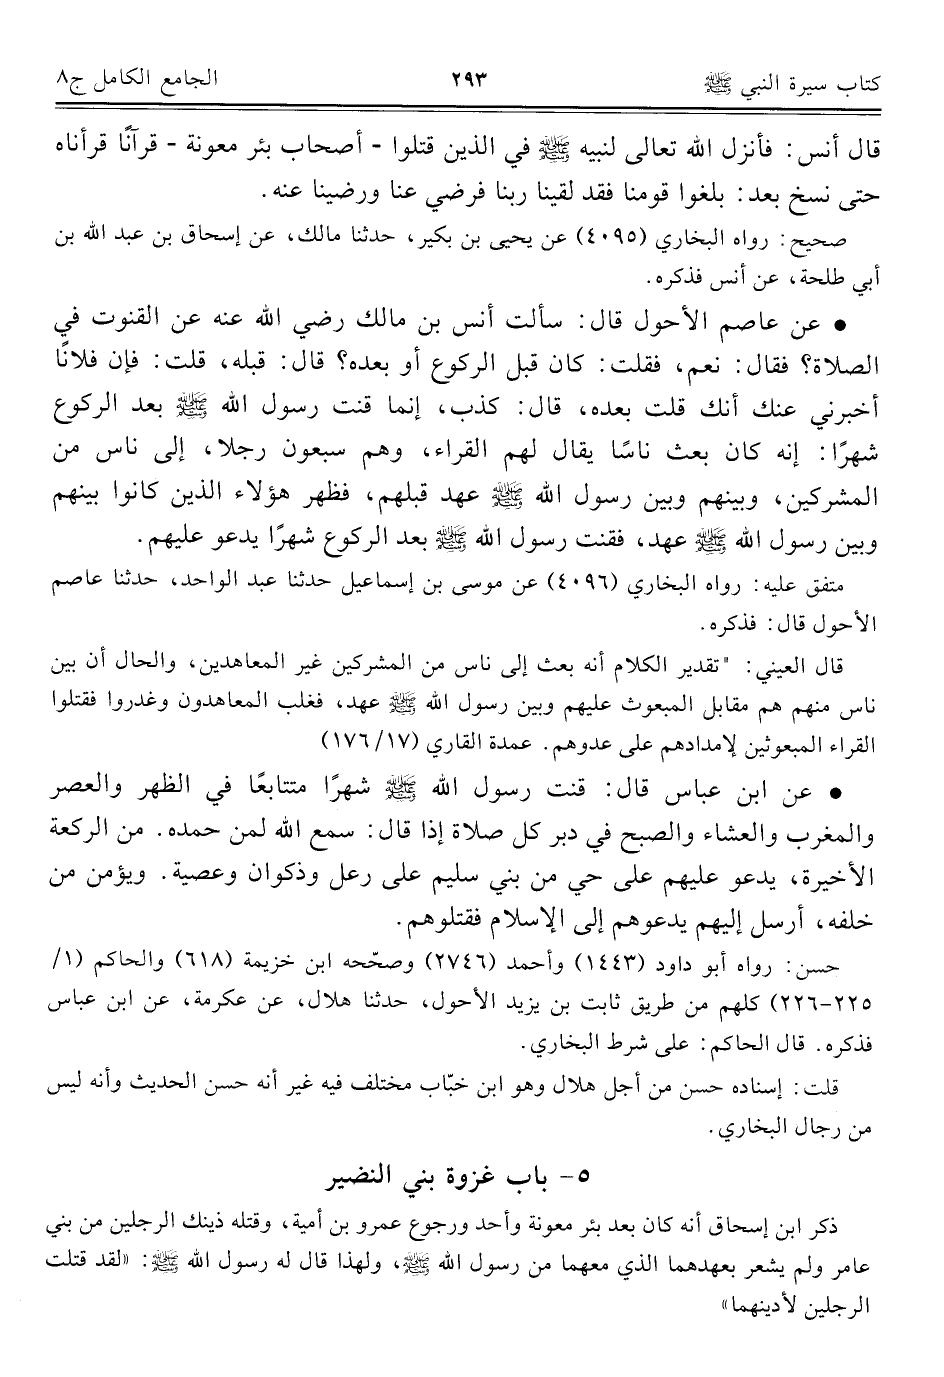 كتاب سيرة النبي ﷺ ٢٩٣ الجامع الكامل ج٨
قال أنس: فأنزل الله تعالى لنبيه ﷺ في الذين قتلوا - أصحاب بئر معونة - قرآنًا قرأناه
حتى نسخ بعد: بلغوا قومنا فقد لقينا ربنا فرضي عنا ورضينا عنه.
صحيح: رواه البخاري (٤٠٩٥) عن يحيى بن بكير، حدثنا مالك، عن إسحاق بن عبد الله بن
أبي طلحة، عن أنس فذكره.
• عن عاصم الأحول قال: سألت أنس بن مالك رضي الله عنه عن القنوت في
الصلاة؟ فقال: نعم، فقلت: كان قبل الركوع أو بعده؟ قال: قبله، قلت: فإن فلانًا
أخبرني عنك أنك قلت بعده، قال: كذب، إنما قنت رسول الله ﷺ بعد الركوع
شهرًا: إنه كان بعث ناسًا يقال لهم القراء، وهم سبعون رجلا، إلى ناس من
المشركين، وبينهم وبين رسول الله ﷺ عهد قبلهم، فظهر هؤلاء الذين كانوا بينهم
وبين رسول الله ﷺ عهد، فقنت رسول الله ﷺ بعد الركوع شهرًا يدعو عليهم.
متفق عليه: رواه البخاري (٤٠٩٦) عن موسى بن إسماعيل حدثنا عبد الواحد، حدثنا عاصم
الأحول قال: فذكره.
قال العيني: "تقدير الكلام أنه بعث إلى ناس من المشركين غير المعاهدين، والحال أن بين
ناس منهم هم مقابل المبعوث عليهم وبين رسول الله ﷺ عهد، فغلب المعاهدون وغدروا فقتلوا
القراء المبعوثين لإمدادهم على عدوهم. عمدة القاري (١٧/ ١٧٦)
• عن ابن عباس قال: قنت رسول الله ﷺ شهرًا متتابعًا في الظهر والعصر
والمغرب والعشاء والصبح في دبر كل صلاة إذا قال: سمع الله لمن حمده. من الركعة
الأخيرة، يدعو عليهم على حي من بني سليم على رعل وذكوان وعصية. ويؤمن من
خلفه، أرسل إليهم يدعوهم إلى الإسلام فقتلوهم.
حسن: رواه أبو داود (١٤٤٣) وأحمد (٢٧٤٦) وصحّحه ابن خزيمة (٦١٨) والحاكم (١/
٢٢٥-٢٢٦) كلهم من طريق ثابت بن يزيد الأحول، حدثنا هلال، عن عكرمة، عن ابن عباس
فذكره. قال الحاكم: على شرط البخاري.
قلت: إسناده حسن من أجل هلال وهو ابن خبّاب مختلف فيه غير أنه حسن الحديث وأنه ليس
من رجال البخاري.
٥- باب غزوة بني النضير
ذكر ابن إسحاق أنه كان بعد بئر معونة وأحد ورجوع عمرو بن أمية، وقتله ذينك الرجلين من بني
عامر ولم يشعر بعهدهما الذي معهما من رسول الله ﷺ، ولهذا قال له رسول الله ﷺ: «لقد قتلت
الرجلين لأدينهما»